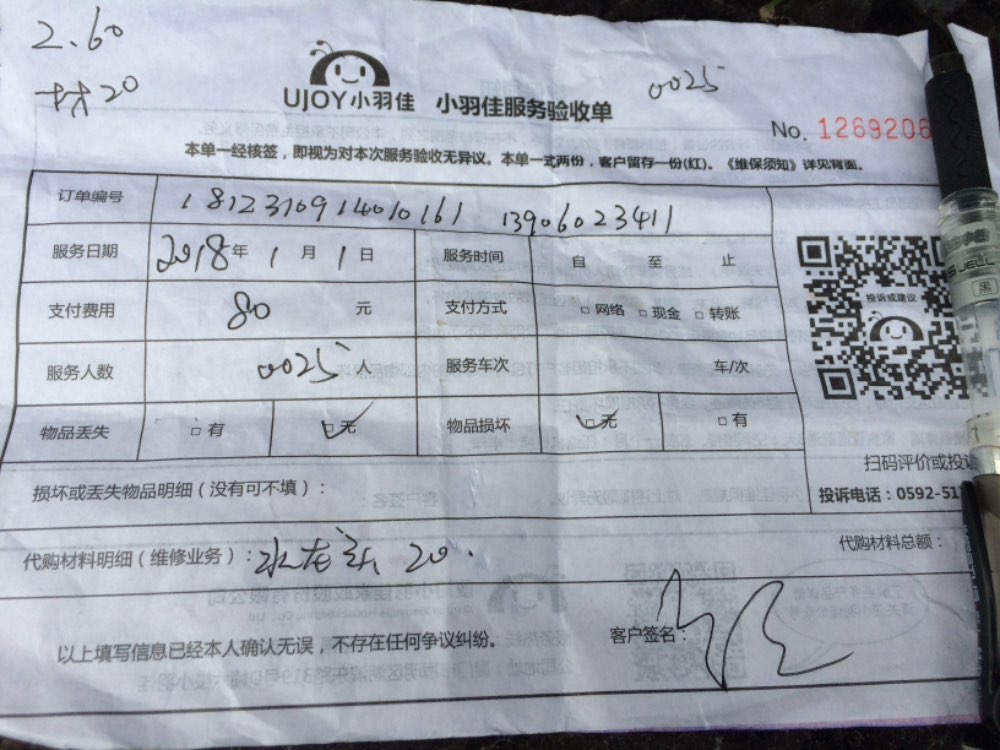 2.60
材20
UJOY小羽佳 小羽佳服务验收单
0025
No. 1269206
本单一经核签，即视为对本次服务验收无异议。本单一式两份，客户留存一份(红)。《维保须知》详见背面。
订单编号 1812310914010161 13906023411
服务日期 2018年1月1日 服务时间 自 至 止
支付费用 80 元 支付方式 □网络 □现金 □转账
投诉或建议
服务人数 0025 人 服务车次 车/次
物品丢失 □有 □无 物品损坏 □无 □有
扫码评价或投诉
损坏或丢失物品明细（没有可不填）：
投诉电话：0592-51
代购材料明细（维修业务）：水龙头 20.
代购材料总额：
以上填写信息已经本人确认无误，不存在任何争议纠纷。
客户签名：